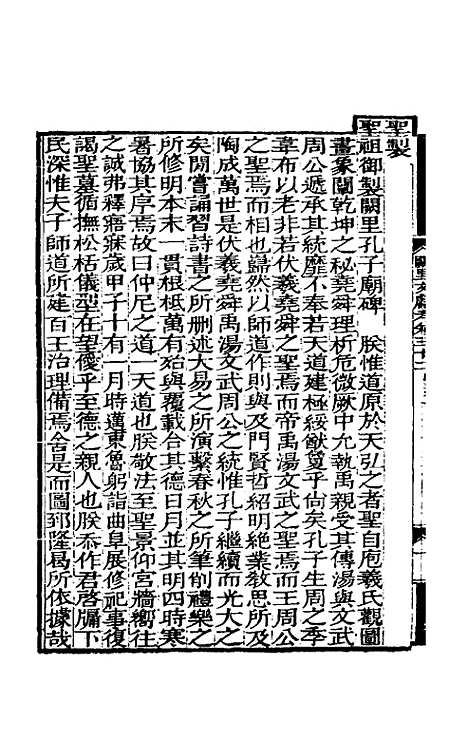 聖製
聖祖御製闕里孔子廟碑　朕惟道原於天弘之者聖自庖羲氏觀圖
畫象闡乾坤之秘堯舜理析危微厥中允執禹親受其傳湯與文武
周公遞承其統靡不奉若天道建極綏猷敻乎尚矣孔子生周之季
韋布以老非若伏羲堯舜之聖焉而帝禹湯文武之聖焉而王周公
之聖焉而相也巋然以師道作則與及門賢哲紹明絶業教思所及
陶成萬世是伏羲堯舜禹湯文武周公之統惟孔子繼續而光大之
矣間嘗誦習詩書之所刪述大易之所演繫春秋之所筆削禮樂之
所修明本末一貫根柢萬有始與覆載合其德日月並其明四時寒
暑協其序焉故曰仲尼之道一天道也朕敬法至聖景仰宮牆嚮往
之誠弗釋寤寐歲甲子十有一月時邁東魯躬詣曲阜展修祀事復
謁聖墓循撫松栝儀型在望僾乎至德之親人也朕忝作君啓牖下
民深惟夫子師道所建百王治理備焉舍是而圖郅隆曷所依據哉